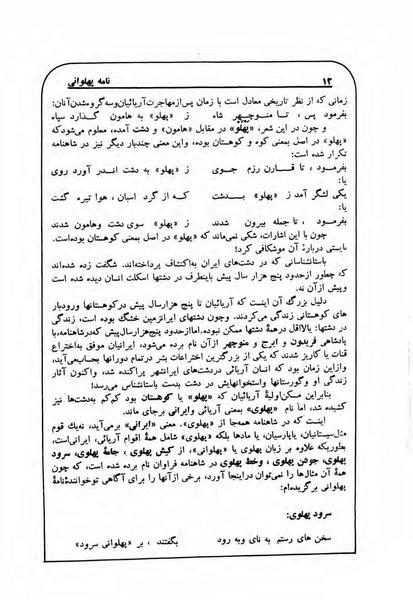 ۱۲ نامه پهلوانی
زمانی که از نظر تاریخی معادل است با زمان پس‌ازمهاجرت‌آریائیان‌وسه‌گروه‌شدن‌آنان:
بفرمود پس، تا منوچهر شاه ز «پهلو» به هامون گذارد سپاه
و چون در این شعر، «پهلو» در مقابل «هامون» و دشت آمده، معلوم می‌شودکه
«پهلو» در اصل بمعنی کوه و کوهستان بوده، و این معنی چندبار دیگر نیز در شاهنامه
تکرار شده است:
بفرمود، تا قارن رزم جوی ز «پهلو» به دشت اندر آورد روی
یا:
یکی لشگر آمد ز «پهلو» بدشت که از گرد اسبان، هوا تیره گشت
یا:
بفرمود، تا جمله بیرون شدند ز «پهلو» سوی دشت وهامون شدند
چون با این اشارات، شکی نمی‌ماند که «پهلو» در اصل بمعنی کوهستان بوده‌است.
بایستی دربارهٔ آن موشکافی کرد!
باستانشناسانی که در دشتهای ایران به‌اکتشاف پرداخته‌اند. شگفت زده شده‌اند
که چطور ازحدود پنج هزار سال پیش باینطرف در دشتها اسکلت انسان دیده شده است
و پیش ازآن نه.
دلیل بزرگ آن اینست که آریائیان تا پنج هزارسال پیش درکوهستانها ورودبار
های کوهستانی زندگی می‌کردند. وچون دشتهای ایرانزمین خشک بوده است، زندگی
در دشتها: یالااقل درهمهٔ دشتها ممکن نبوده. اماازحدود پنج‌هزارسال‌پیش‌که‌درشاهنامه،با
پادشاهی فریدون و ایرج و منوچهر ازآن نام برده می‌شود، ایرانیان موفق به‌اختراع
قنات یا کاریز شدند که یکی از بزرگترین اختراعات بشر درتمام دورانها بحساب‌می‌آید،
وازاین زمان بود که انسان آریائی دردشتهای ایرانشهر پراکنده شد، واکنون آثار
زندگی او وگورستانها واستخوانهایش در دشت بدست باستانشناس می‌رسد!
بنابراین مسکن‌اولیهٔ آریائیان که «پهلو» یا کوهستان بود کم‌کم به‌دشت‌ها نیز
کشیده شد، اما نام «پهلوی» بمعنی آریائی وایرانی برجای ماند.
اینست که در شاهنامه همه‌جا از «پهلوی». معنی «ایرانی» برمی‌آید، نه‌یك قوم
مثل‌سیستانیان، یاپارسیان، یا مادها بلکه «پهلوی» شامل همهٔ اقوام آریائی، ایرانی‌است،
بطوریکه علاوه بر زبان پهلوی یا «پهلوانی»، از کیش پهلوی، جامهٔ پهلوی، سرود
پهلوی، جوشن پهلوی، وخط پهلوی در شاهنامه فراوان نام برده شده است، که چون
همهٔ آن مثال‌ها را نمی‌توان دراینجا آورد، برخی ازآنها را برای آگاهی توخوانندهٔ‌نامهٔ
پهلوانی برگزیده‌ام:
سرود پهلوی:
سخن های رستم به نای وبه رود بگفتند، بر «پهلوانی سرود»